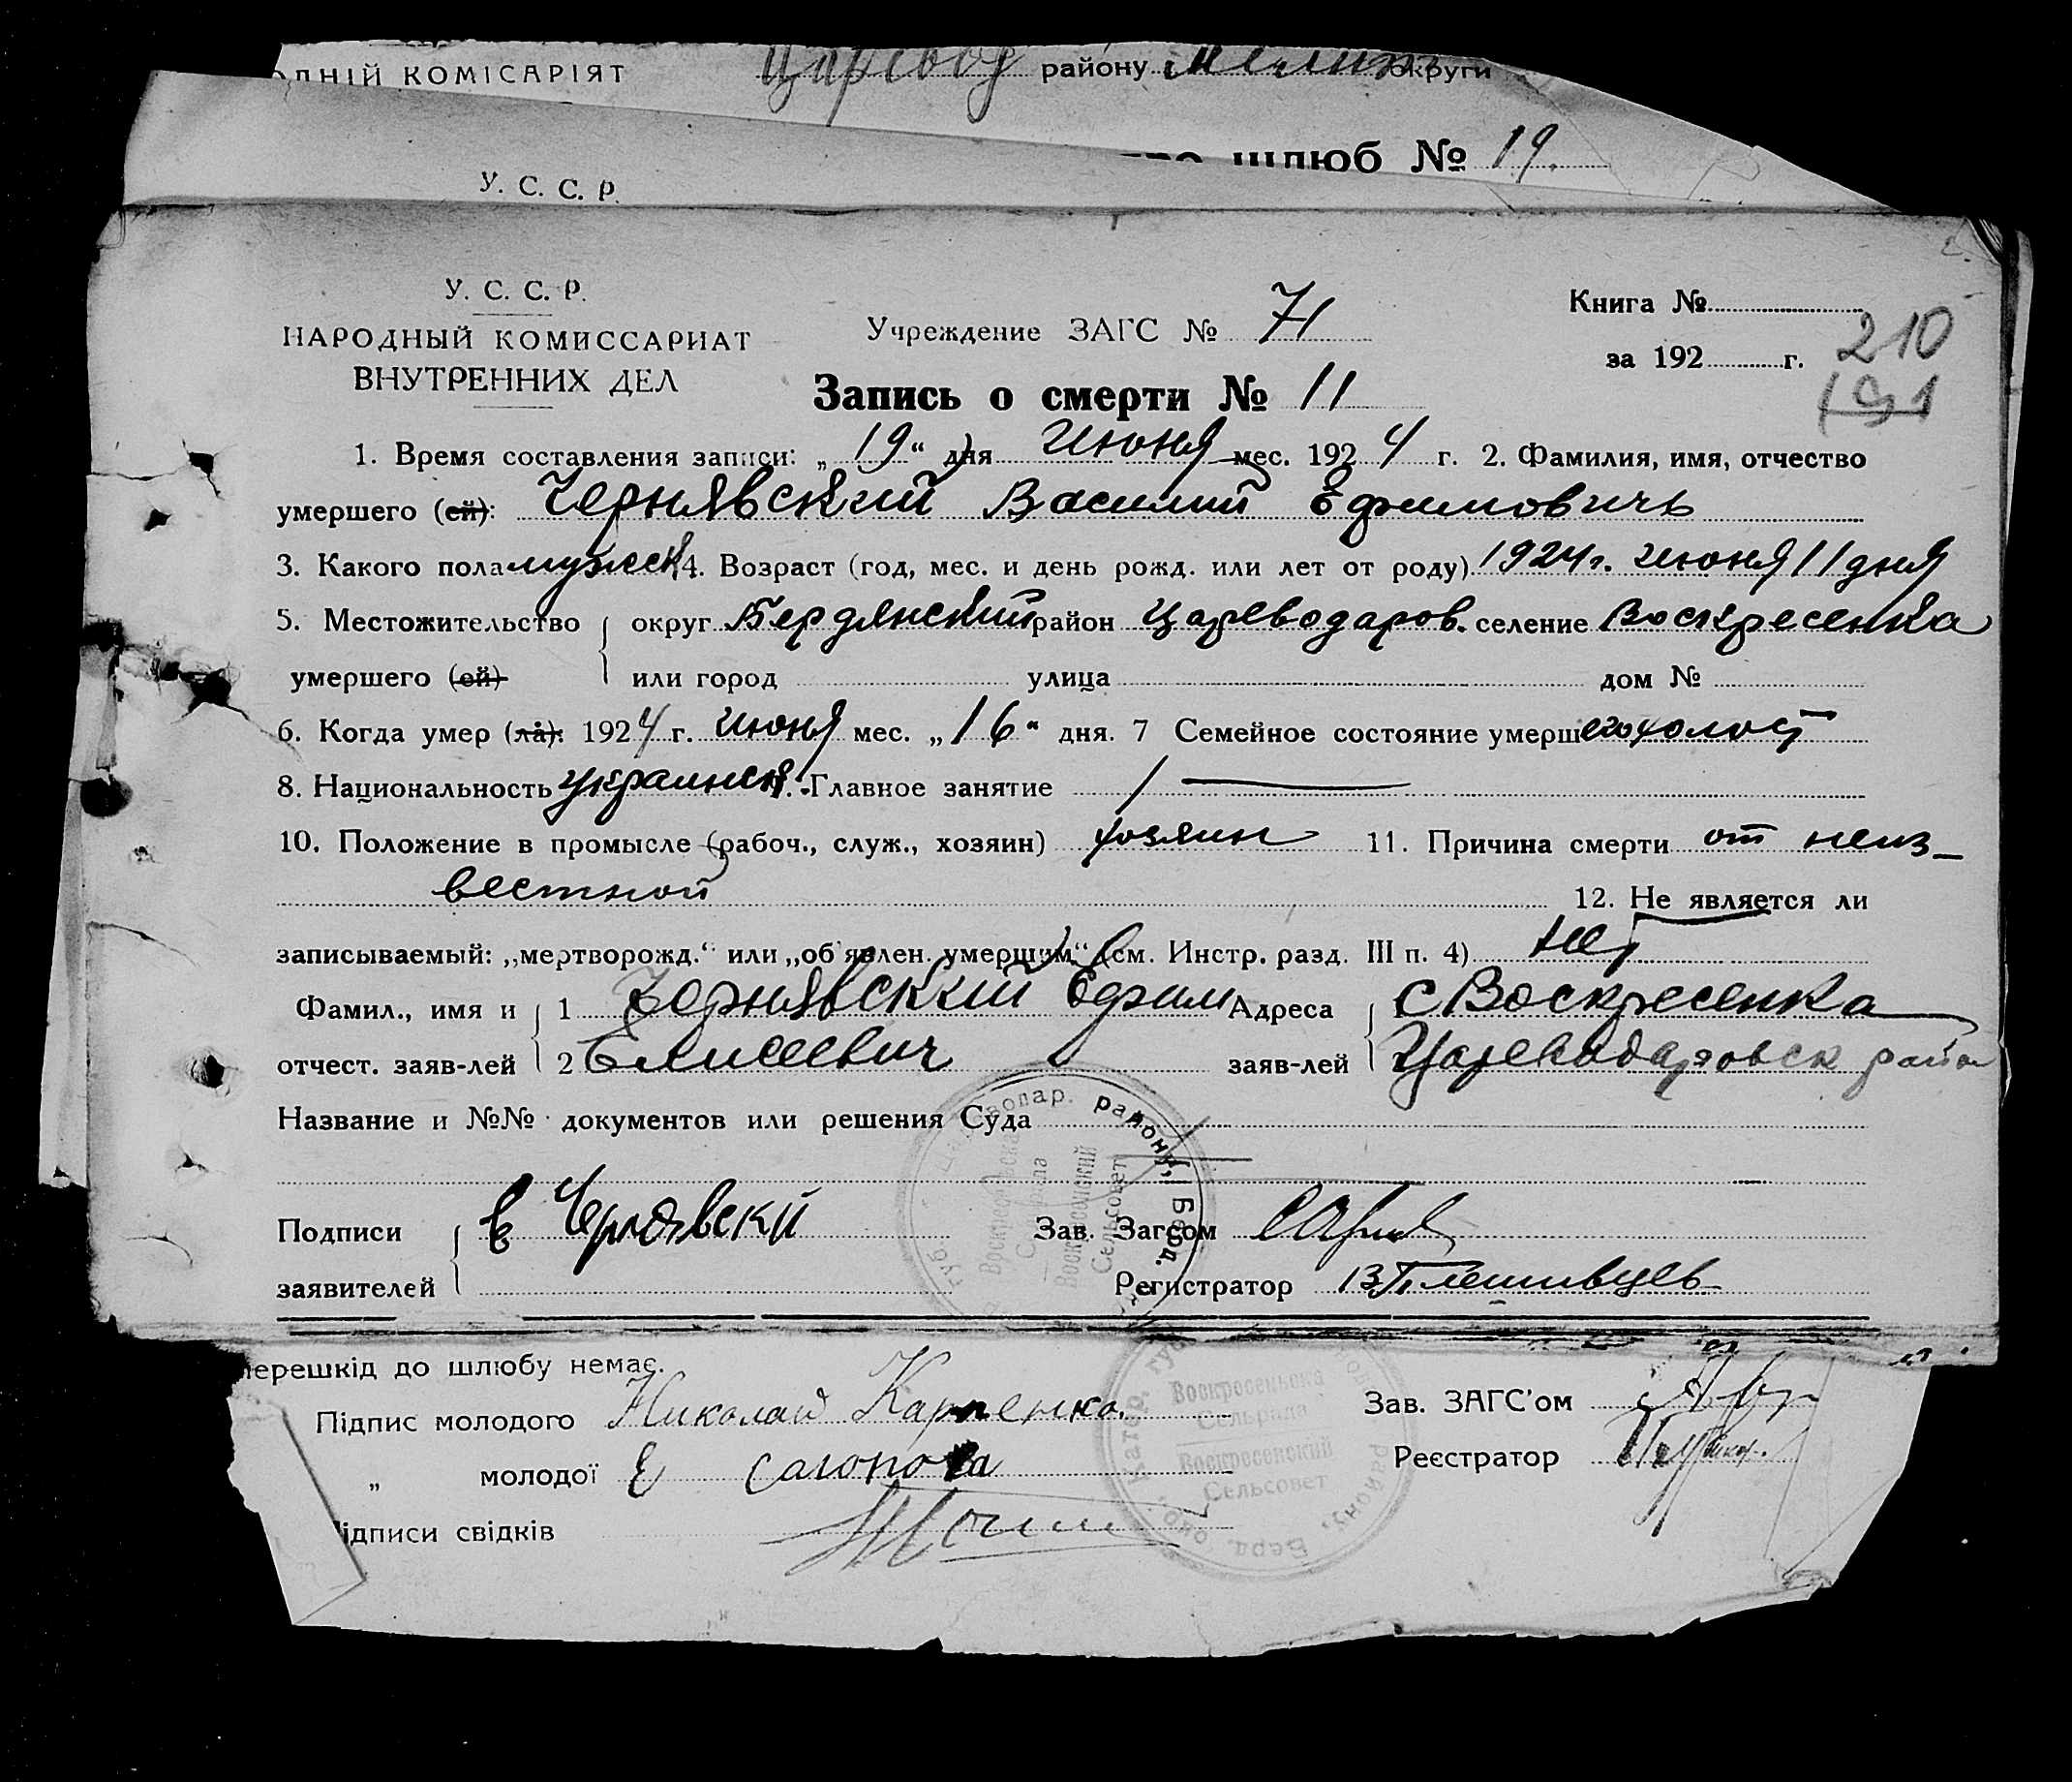 ОДНІЙ КОМІСАРІЯТ Царевод району округи
шлюб № 19.
У. С. С. Р.
У. С. С. Р.
НАРОДНЫЙ КОМИССАРИАТ
ВНУТРЕННИХ ДЕЛ
Учреждение ЗАГС № 71
Книга №
за 192 г.
210
191
Запись о смерти № 11
1. Время составления записи: „ 19 “ дня Июня мес. 192 4 г. 2. Фамилия, имя, отчество
умершего (ей): Чернявский Василий Ефимовичь
3. Какого пола мужеск 4. Возраст (год, мес. и день рожд. или лет от роду) 1924 г. июня 11 дня
5. Местожительство округ Бердянский район Цареводаров. селение Воскресенка
умершего (ей) или город улица дом №
6. Когда умер (ла): 192 4 г. июня мес. „ 16 “ дня. 7 Семейное состояние умерш его холост
8. Национальность украинск. Главное занятие
10. Положение в промысле (рабоч., служ., хозяин) хозяин 11. Причина смерти от неиз-
вестной 12. Не является ли
записываемый: „мертворожд.“ или „об'явлен. умершим“ (см. Инстр. разд. III п. 4) нет
Фамил., имя и 1 Чернявский Ефим Адреса с Воскресенка
отчест. заяв-лей 2 Елисеевич заяв-лей Цареводаровск район
Название и №№ документов или решения Суда
Подписи Е Чернявски Зав. Загсом
заявителей Регистратор
району, Берд.
Воскресенский
Сельсовет
перешкід до шлюбу немає.
Підпис молодого Николай Карпенко. Зав. ЗАГС'ом
„ молодої Е Сагонова Реєстратор
ідписи свідків
Воскресенська
Сельрада
Воскресенский
Сельсовет
району, Берд. окр.